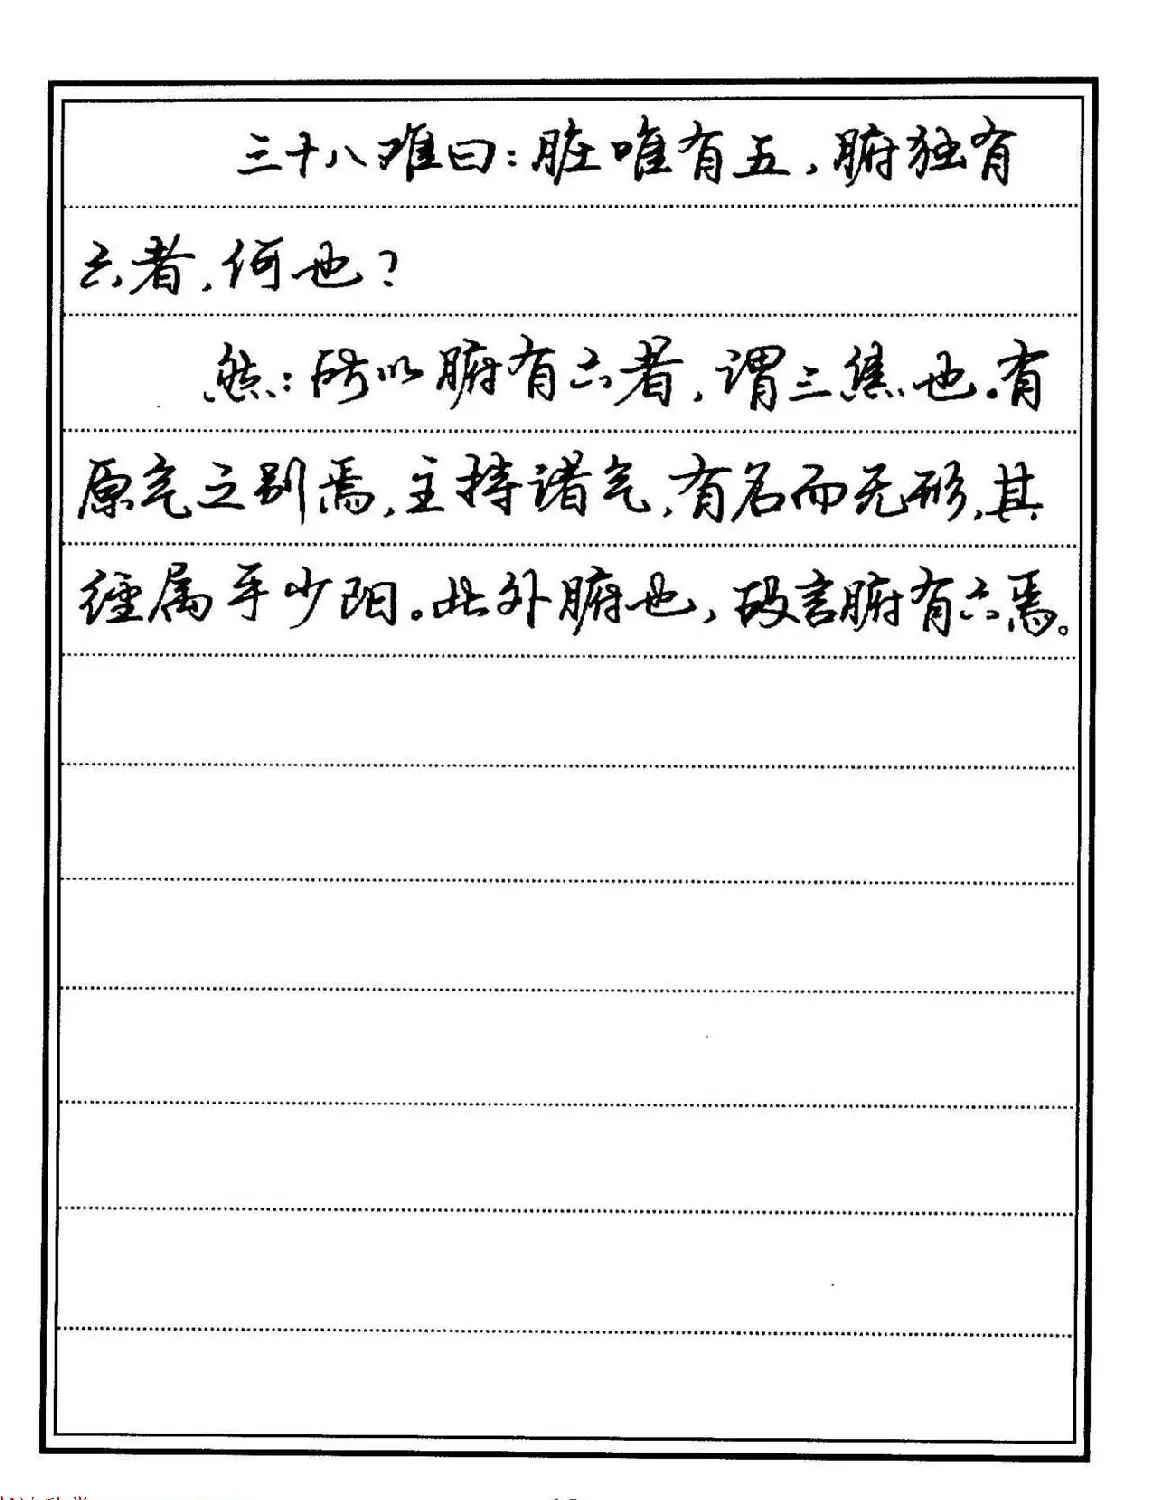 三十八难曰：脏唯有五，腑独有
六者，何也？
然：所以腑有六者，谓三焦也。有
原气之别焉，主持诸气，有名而无形，其
经属手少阳。此外腑也，故言腑有六焉。